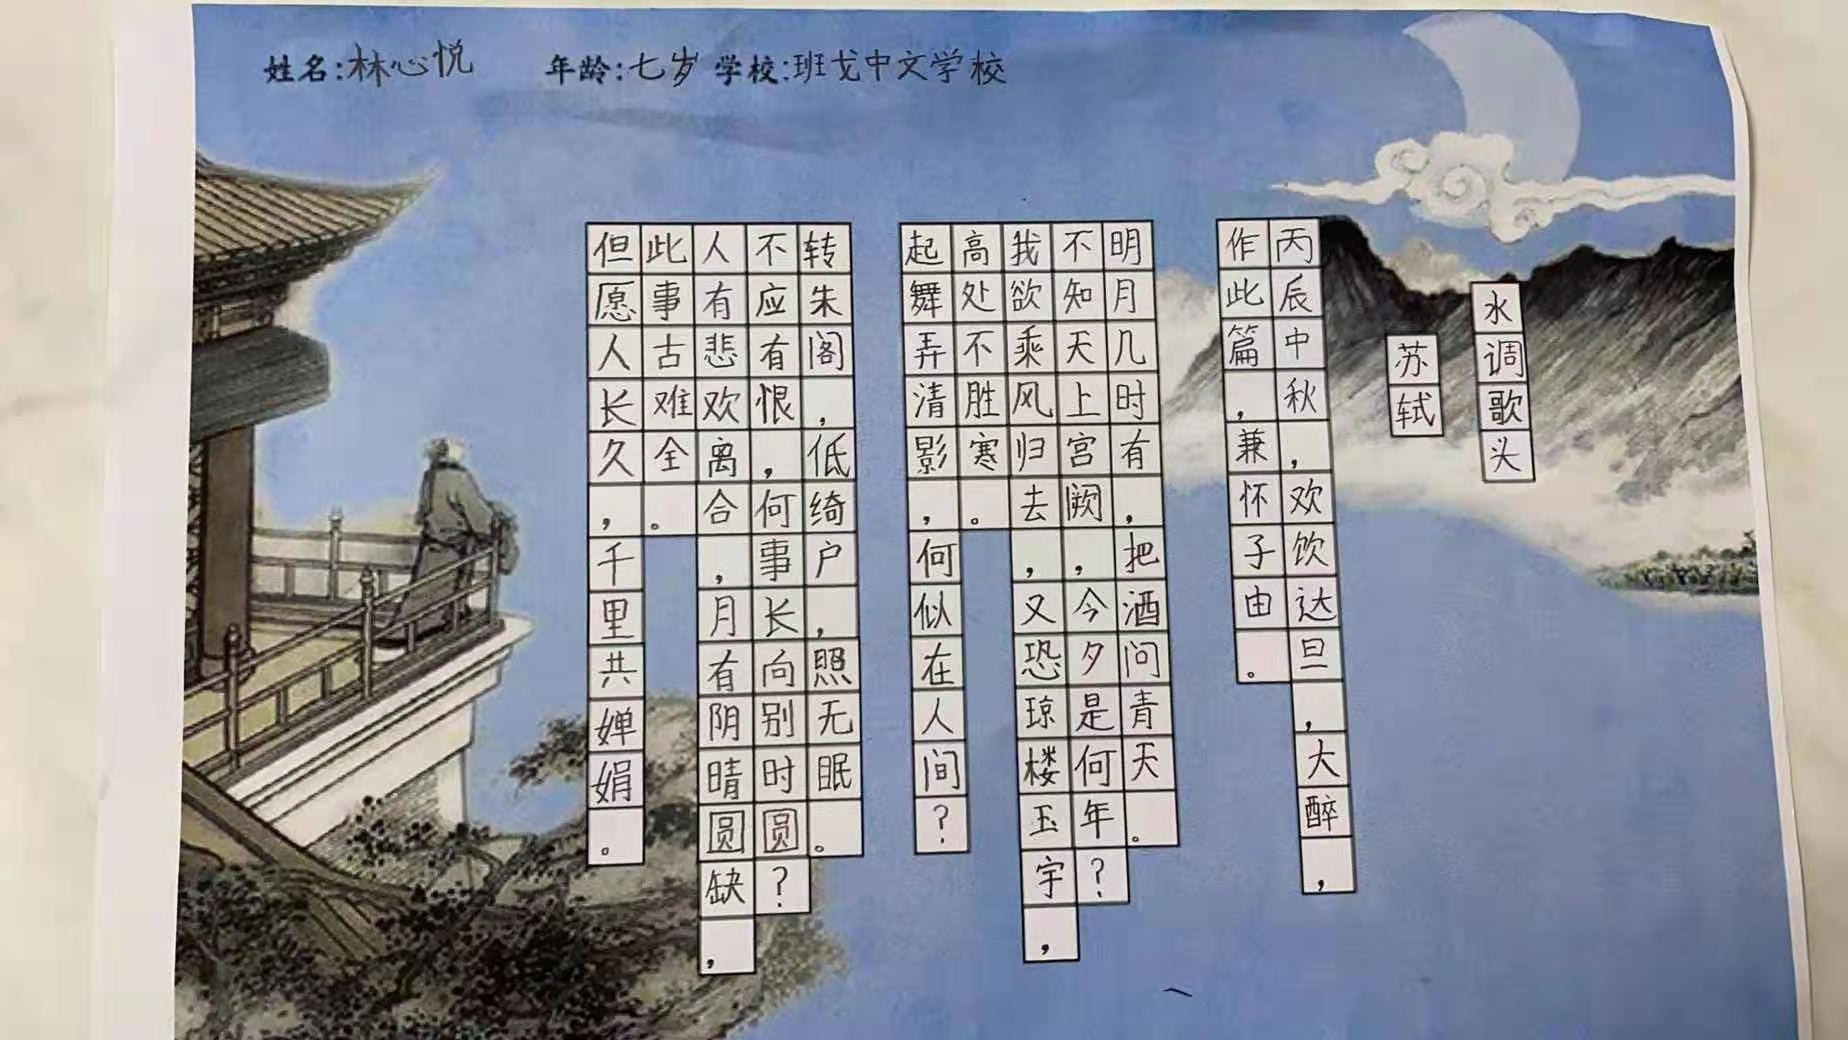 姓名:林心悦 年龄:七岁 学校:班戈中文学校
水调歌头
苏轼
丙辰中秋,欢饮达旦,大醉,
作此篇,兼怀子由。
明月几时有,把酒问青天。
不知天上宫阙,今夕是何年?
我欲乘风归去,又恐琼楼玉宇,
高处不胜寒。
起舞弄清影,何似在人间?
转朱阁,低绮户,照无眠。
不应有恨,何事长向别时圆?
人有悲欢离合,月有阴晴圆缺,
此事古难全。
但愿人长久,千里共婵娟。